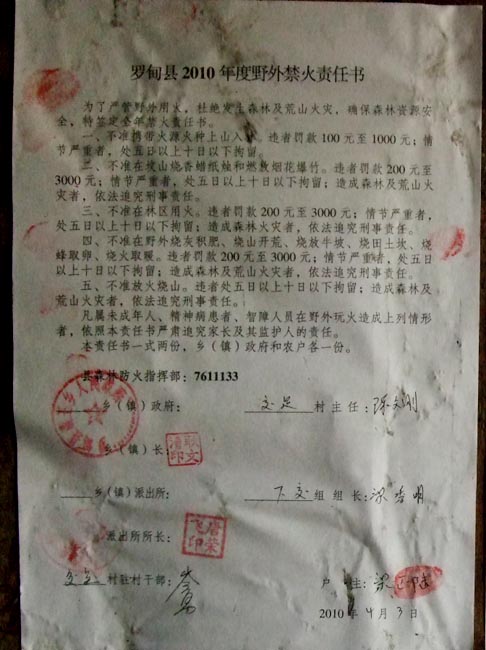 罗甸县 2010 年度野外禁火责任书
为了严管野外用火，杜绝发生森林及荒山火灾，确保森林资源安
全，特签定全年禁火责任书。
一、不准携带火源火种上山入林。违者罚款 100 元至 1000 元；情
节严重者，处五日以上十日以下拘留。
二、不准在坟山烧香蜡纸烛和燃放烟花爆竹。违者罚款 200 元至
3000 元；情节严重者，处五日以上十日以下拘留；造成森林及荒山火
灾者，依法追究刑事责任。
三、不准在林区用火。违者罚款 200 元至 3000 元；情节严重者，
处五日以上十日以下拘留；造成森林火灾者，依法追究刑事责任。
四、不准在野外烧灰积肥、烧山开荒、烧放牛坡、烧田土坎、烧
蜂取卵、烧火取暖。违者罚款 200 元至 3000 元；情节严重者，处五日
以上十日以下拘留；造成森林及荒山火灾者，依法追究刑事责任。
五、不准放火烧山。违者处五日以上十日以下拘留；造成森林及
荒山火灾者，依法追究刑事责任。
凡属未成年人、精神病患者、智障人员在野外玩火造成上列情形
者，依照本责任书严肃追究家长及其监护人的责任。
本责任书一式两份，乡（镇）政府和农户各一份。
县森林防火指挥部：7611133
乡（镇）政府： 交足 村主任：陈文刚
乡（镇）长：
乡（镇）派出所： 下交 组组长：梁秀明
派出所所长： 唐荣飞印
交足 村驻村干部：
户 主：梁
2010 年 4 月 3 日